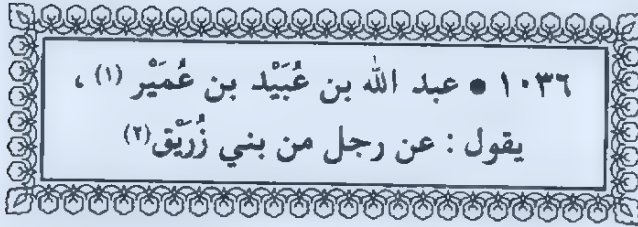 ١٠٣٦ ● عبد الله بن عُبَيْد بن عُمَيْر (١) ،
يقول : عن رجل من بني زُرَيْق(٢)